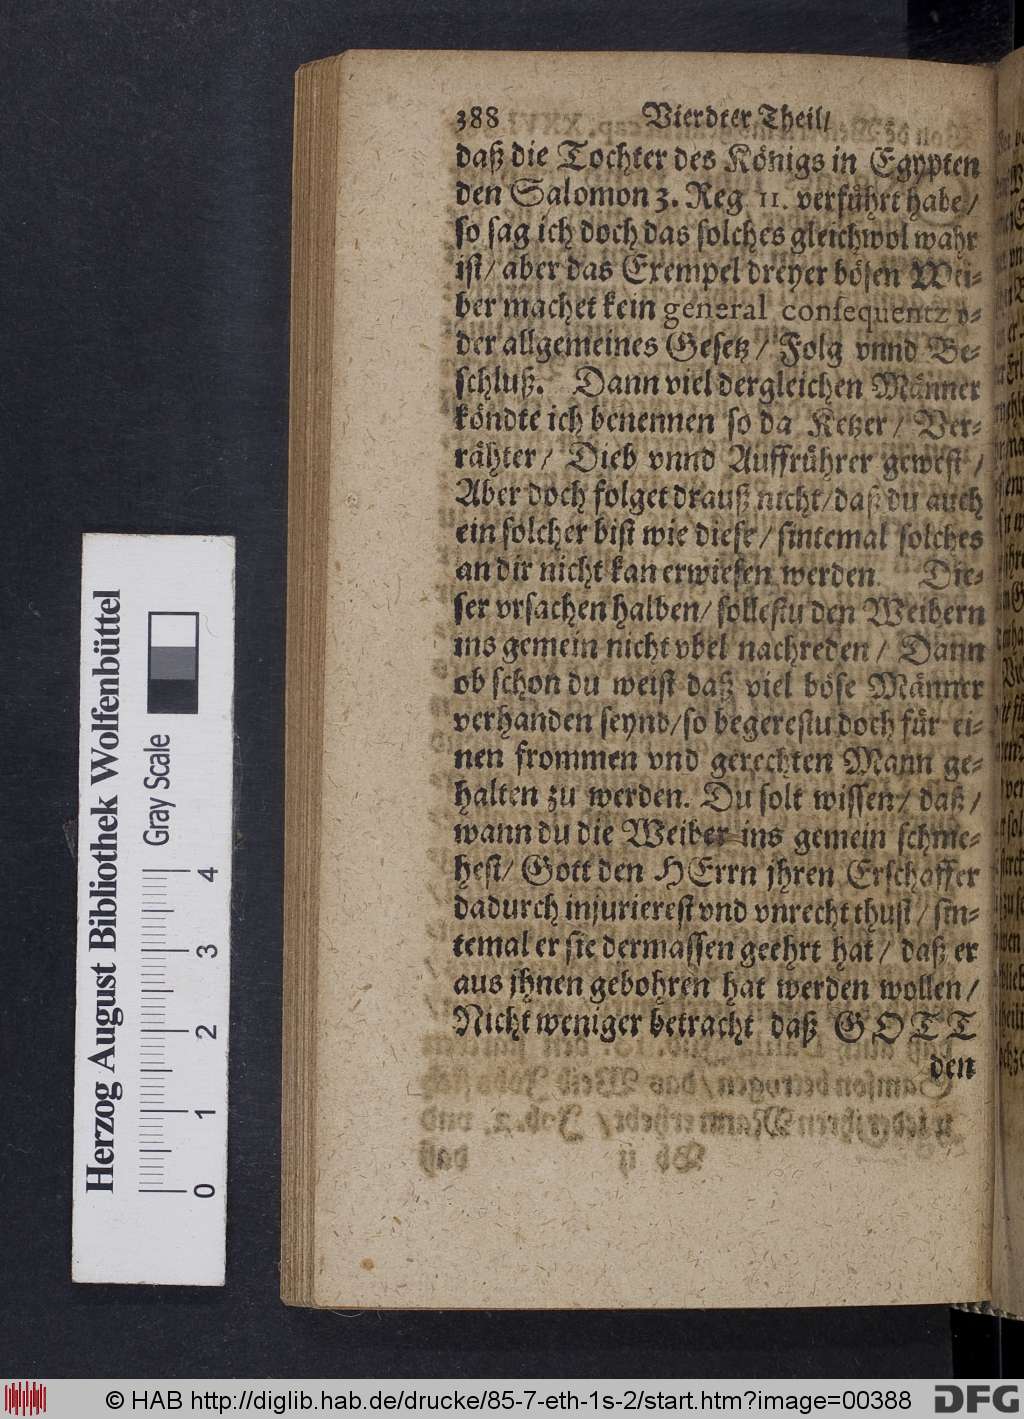 388 Vierdter Theil/
daß die Tochter des Königs in Egypten
den Salomon 3. Reg 11. verführt habe/
so sag ich doch das solches gleichwol wahr
ist/ aber das Exempel dreyer bösen Wei-
ber machet kein general consequentz o-
der allgemeines Gesetz/ Folg vnnd Be-
schluß. Dann viel dergleichen Männer
köndte ich benennen so da Ketzer/ Ver-
rähter/ Dieb vnnd Auffrührer gewest/
Aber doch folget drauß nicht/ daß du auch
ein solcher bist wie diese/ sintemal solches
an dir nicht kan erwiesen werden. Die-
ser vrsachen halben/ sollestu den Weibern
ins gemein nicht vbel nachreden/ Dann
ob schon du weist daß viel böse Männer
verhanden seynd/ so begerestu doch für ei-
nen frommen vnd gerechten Mann ge-
halten zu werden. Du solt wissen/ daß/
wann du die Weiber ins gemein schme-
hest/ Gott den HErrn jhren Erschaffer
dadurch injurierest vnd vnrecht thust/ sin-
temal er sie dermassen geehrt hat/ daß er
aus jhnen gebohren hat werden wollen/
Nicht weniger betracht daß GOTT
den
Herzog August Bibliothek Wolfenbüttel
Gray Scale
0 1 2 3 4
© HAB http://diglib.hab.de/drucke/85-7-eth-1s-2/start.htm?image=00388
DFG